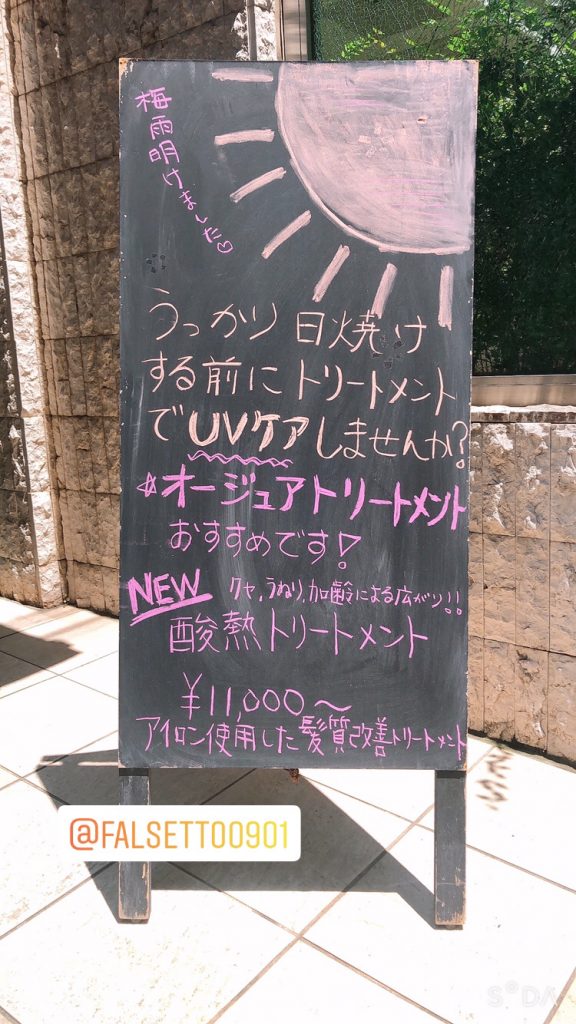 梅雨明けました♡
うっかり日焼け
する前にトリートメント
でUVケアしませんか?
☆オージュアトリートメント
おすすめです!
NEW クセ,うねり,加齢による広がり!!
酸熱トリートメント
¥11,000〜
アイロン使用した髪質改善トリートメント
@FALSETTO0901
SODA